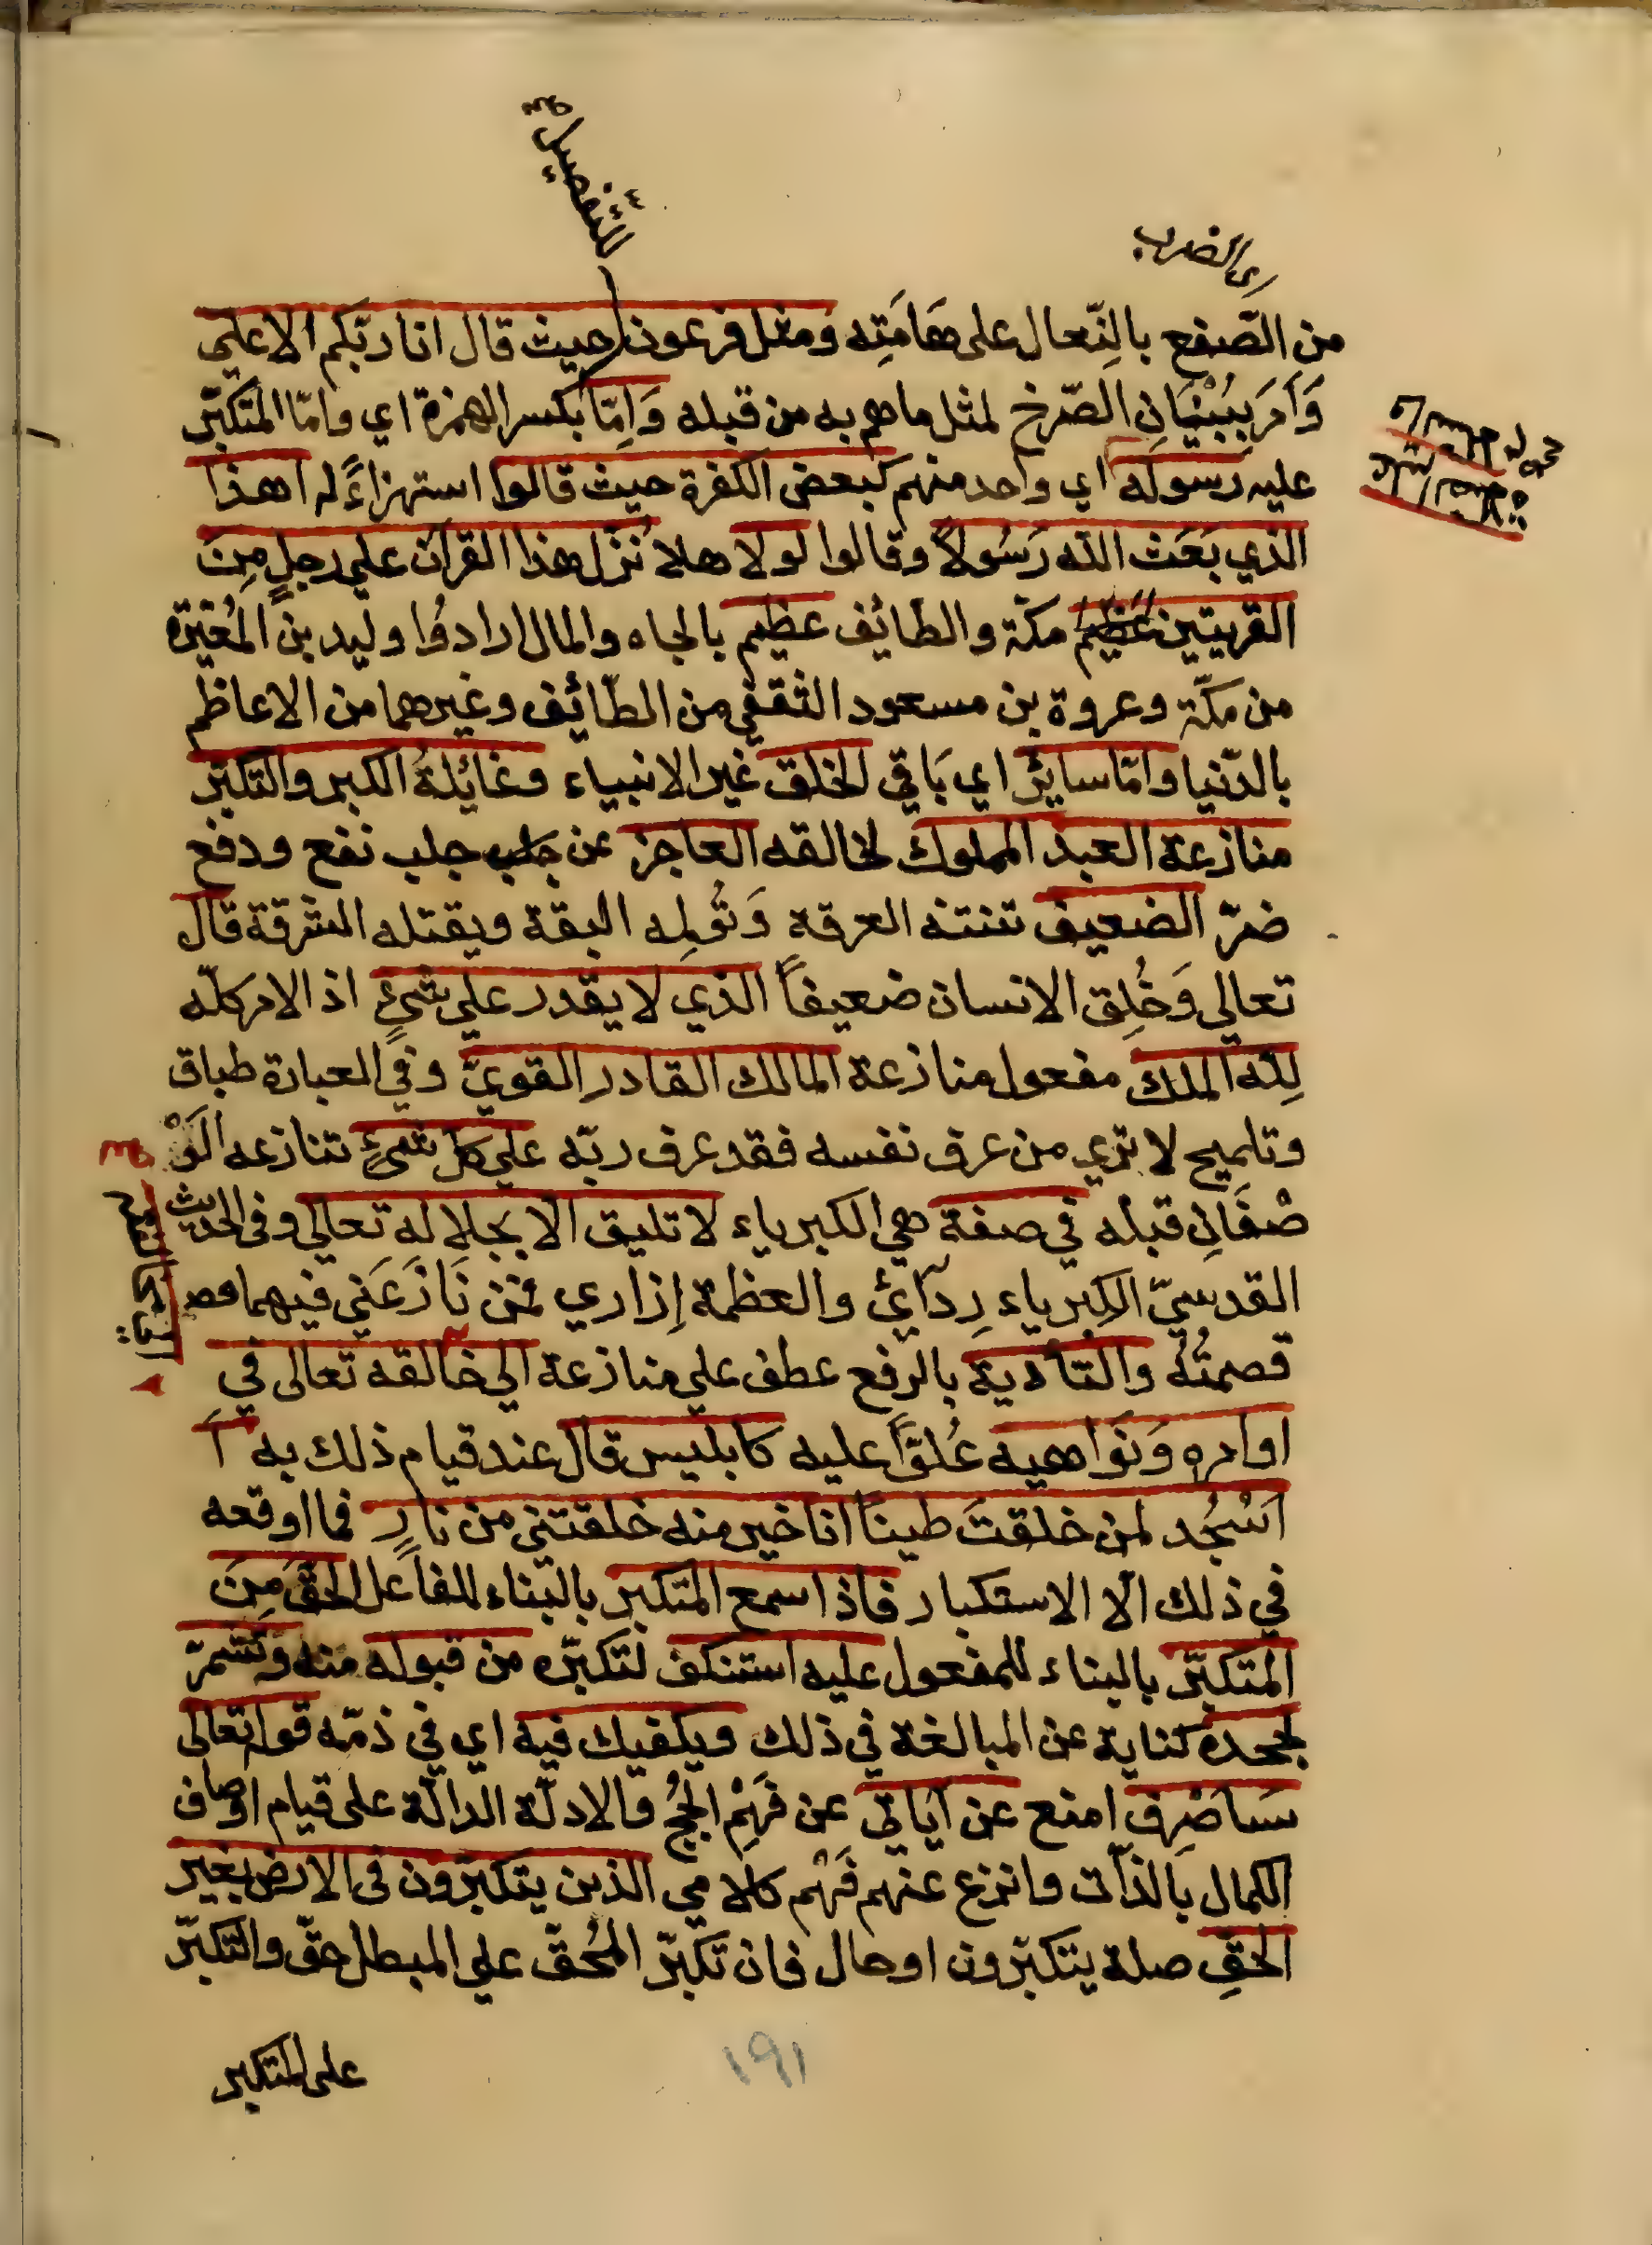 التفصيل صح
اي الضرب
من الصّفع بالنِّعال على هَامَتِه ومثل فرعون حيث قال انا ربّكم الاعلي
وَاَمَرَ بِبُنْيَانِ الصّرخ لمثل ما هم به من قبله وَاِمّا بكسر الهمزة اي وامّا المتكبّر
عليه رسوله اي واحد منهم كبعض الكفرة حيث قالوا استهزاءً له اهذا
الذي بَعَثَ الله رَسُولاً وقالوا لولا هلا نُزّل هذا القرآن علي رجلٍ مِنَ
القريتين عظيم مكّة والطائف عظيم بالجاه والمال ارادوُا وليد بن المُغيَرة
من مكّة وعروة بن مسعود الثقفي من الطّائِف وغيرهما من الاعاظم
بالدّنيا وامّا سايرُ اي بَاقي الخلق غير الانبياء وغائِلةُ الكبر والتكبّر
منازعة العبد المملوك لخالقه العاجز عن جلب جلب نفع ودفع
ضرّ الضعيف تنتنه العرقة وَتُولِمه البقة ويقتله الشرقة قال
تعالي وَخُلِق الانسان ضعيفاً الذي لا يقدر علي شيءٍ اذ الامر كلّه
لِلّه الملكَ مفعول منازعة المالك القادر القويّ وفي العبارة طباق
وتلميح لا تري من عرف نفسه فقد عرف ربّه علي كل شيءٍ تنازعه الوَ
صْفَانِ قبله في صفة هي الكبرياء لا تليق الا بجلاله تعالي وفى الحديث
القدسيّ الكبرياء رِدآئ والعظمة اِزاري فمن نَازَعَني فيهما قص
قصمتُهُ والتّأدية بالرّفع عطف علي منازعة الي خالقه تعالى في
اوامره وَنَواهيه عُلوّاً عليه كابليس قال عند قيام ذلك به أَ
اَسْجُد لمن خلقتَ طيناً انا خير منه خلقتني من نارٍ فما اوقعه
في ذلك الّا الاستكبار فاذا سمع المتكبر بالبناء للفاعل الحقّ مِنَ
المتكبّر بالبناء للمفعول عليه استنكف لتكبّره من قبوله منه وتشمّر
لجحده كناية عن المبالغة في ذلك ويكفيك فيه اي في ذمّه قوله تعالى
سَاَصْرِف امنع عن آياتي عن فَهْمِ الحُجج والادلّة الدالّة على قيام اوصاف
الكمال بالذّات وانزع عنهم فَهْم كلامي الذين يتكبّرون فى الارض بغير
الحقّ صلة يتكبّرون او حال فان تكبّر المُحقّ علي المبطل حقّ والتكبّر
على المتكبر
١٩١